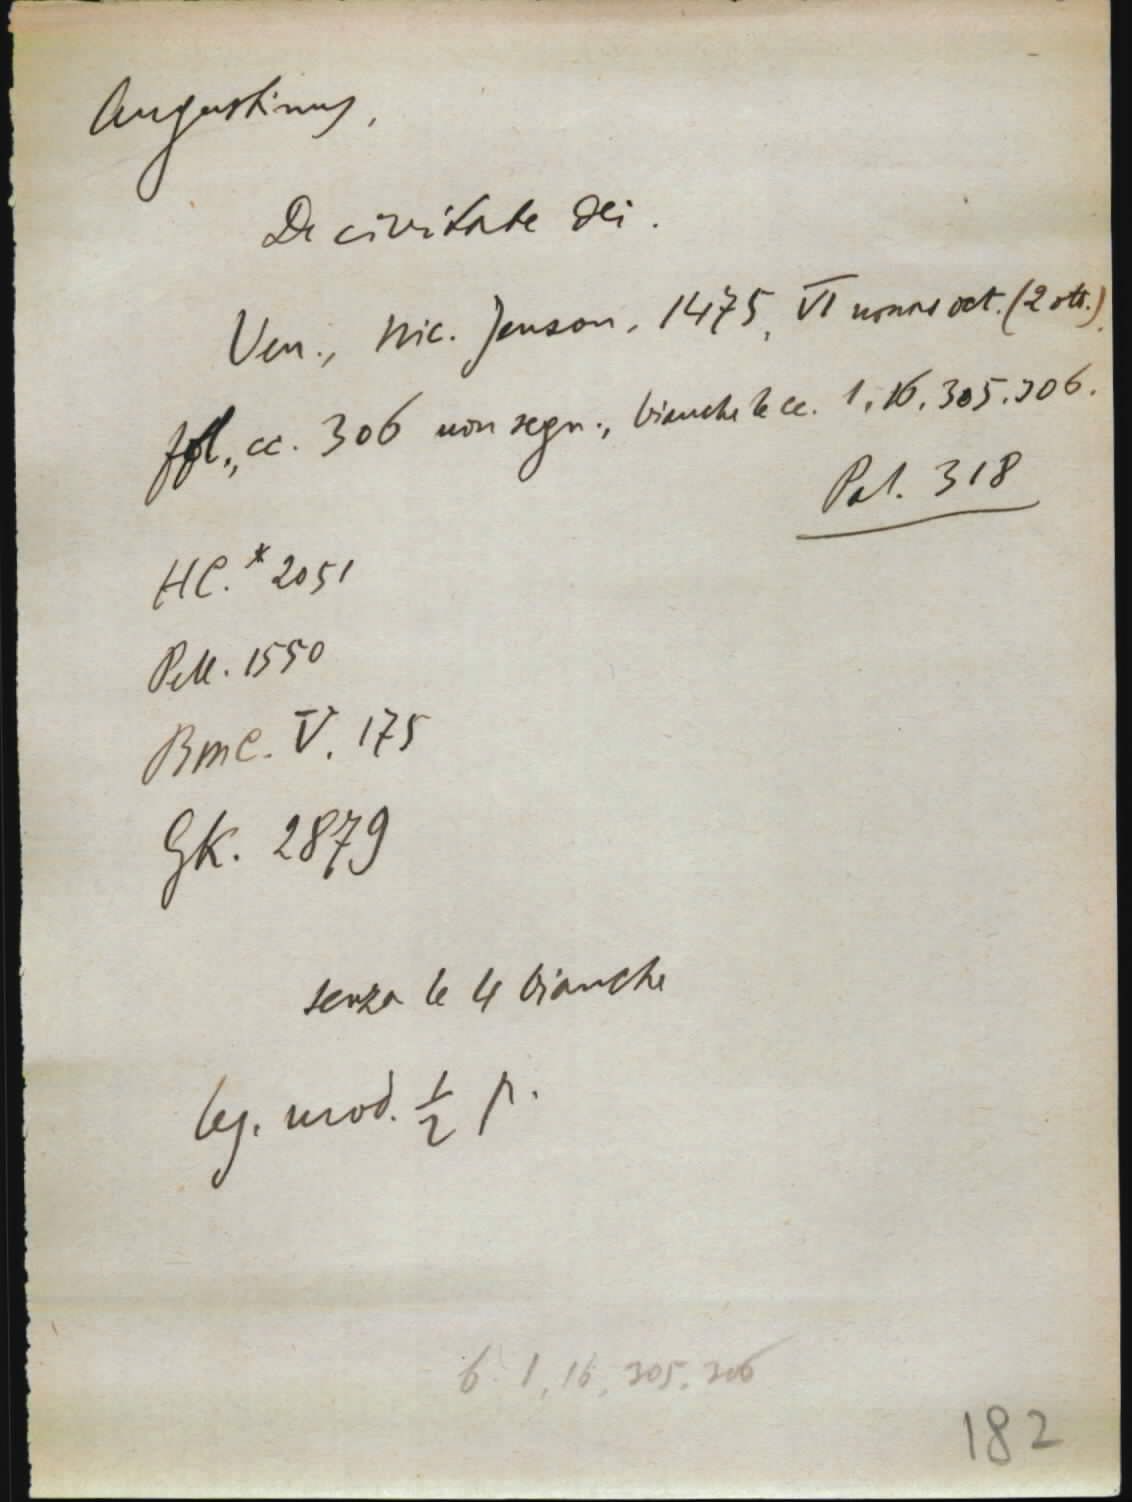 Augustinus,
De civitate dei.
Ven., Nic. Jenson, 1475, VI nonas oct. (2 ott.).
fol., cc. 306 non segn., bianche le cc. 1, 16, 305, 306.
Pal. 318
HC.* 2051
Pell. 1550
BMC. V. 175
GK. 2879
senza le 4 bianche
leg. mod. ½ p.
b. 1, 16, 305, 306
182